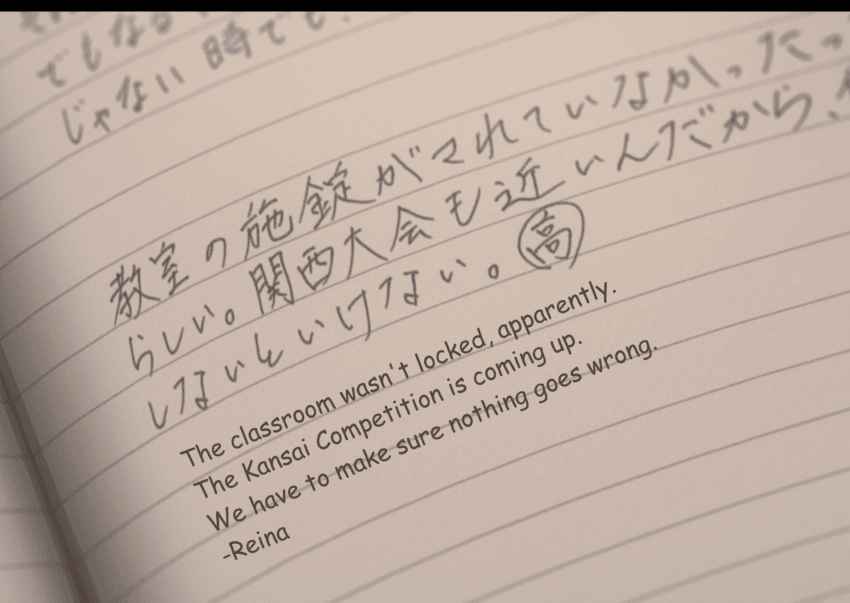 でもなる
じゃない 時でも
教室の施錠がされていなかった
らしい。関西大会も近いんだから、
しないといけない。高
The classroom wasn't locked, apparently.
The Kansai Competition is coming up.
We have to make sure nothing goes wrong.
-Reina